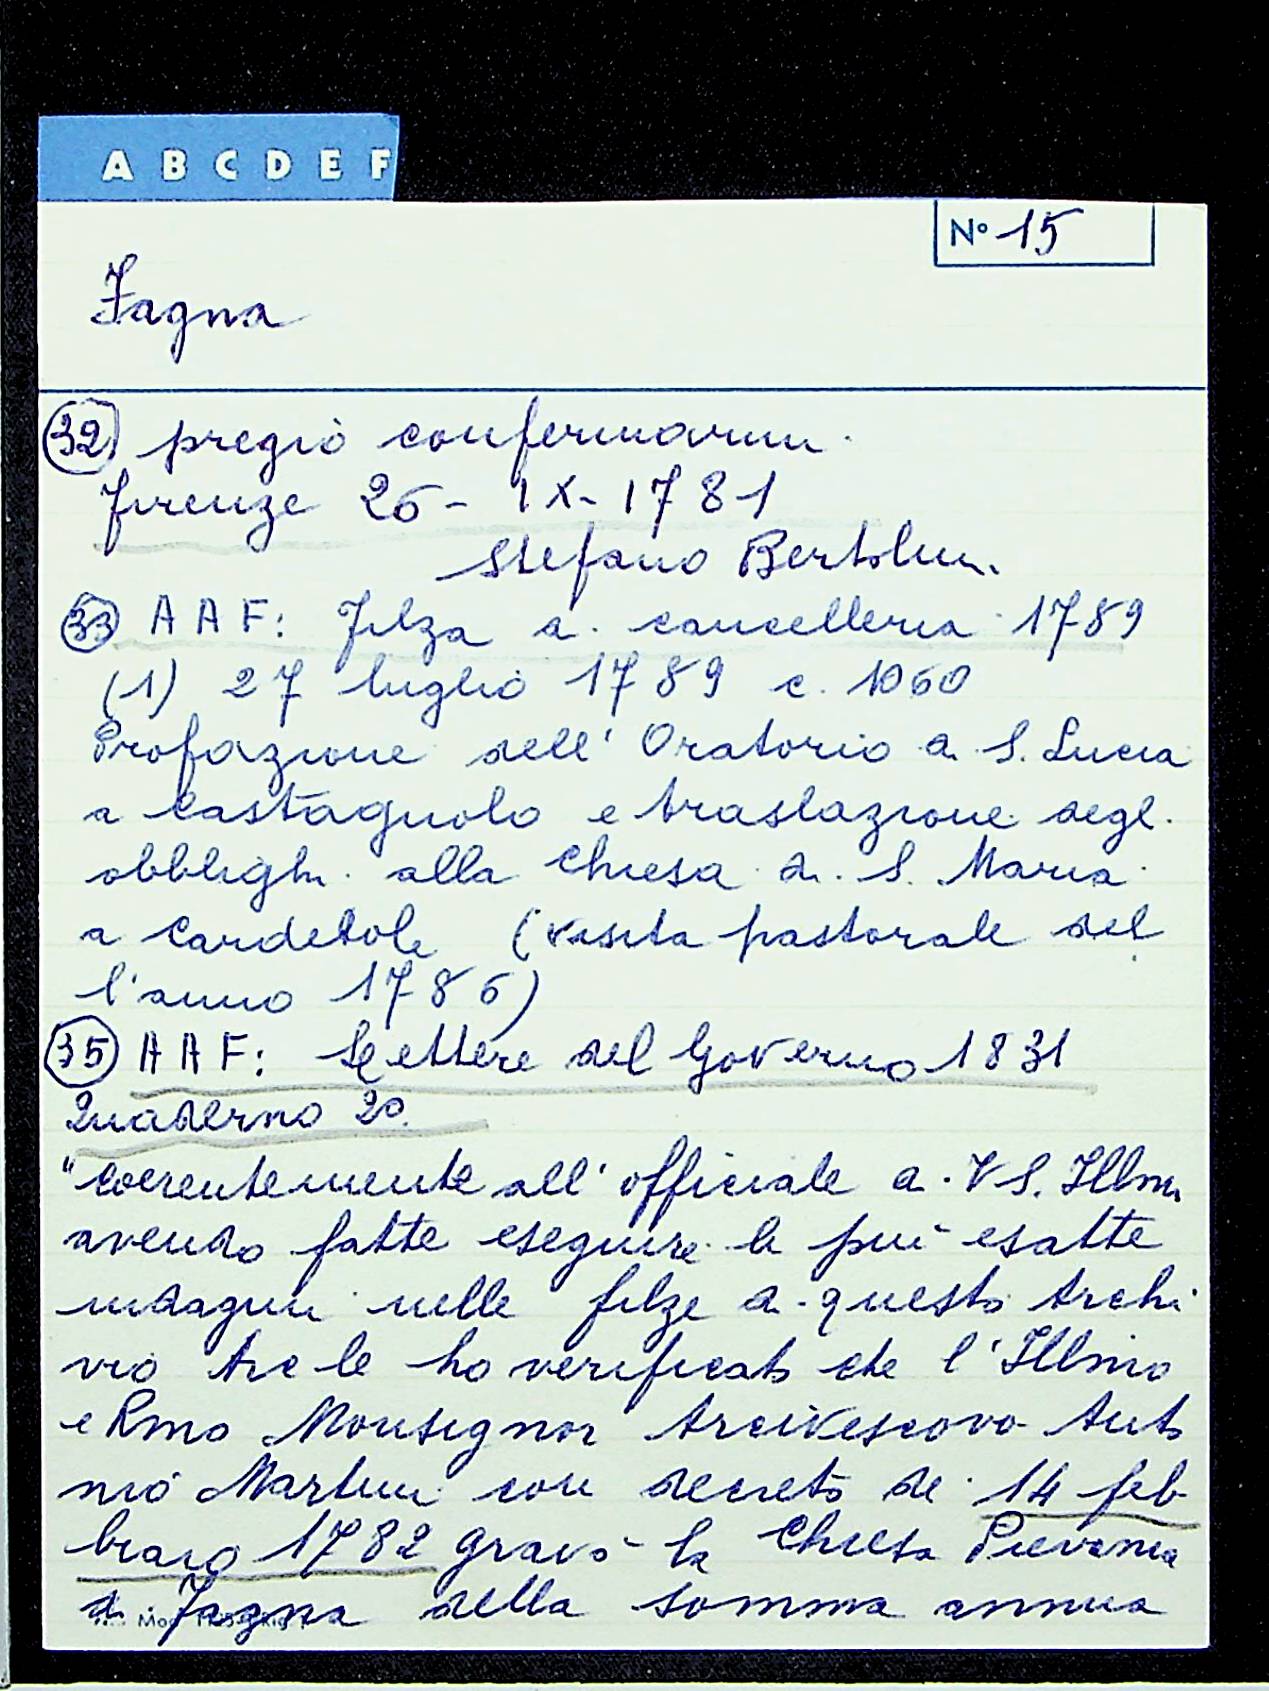 A B C D E F
Nº 15
Fagna
(32) pregiò confermarmi.
Firenze 26 - IX - 1781
Stefano Bertolini.
(33) A A F: Filza di cancelleria 1789
(1) 27 luglio 1789 c. 1060
Profazione dell' Oratorio di S. Lucia
a Castagnolo e traslazione degli
obblighi alla Chiesa di S. Maria
a Cardetole (visita pastorale del
l'anno 1786)
(35) A A F: Lettere del Governo 1831
Quaderno 20.
"Coerentemente all' officiale di VS. Illma
avendo fatte eseguire le più esatte
indagini nelle filze di questo Archi
vio Arc le ho verificato che l' Illmo
e Rmo Monsignor Arcivescovo Anto
nio Martini con decreto de' 14 feb
braio 1782 gravò la Chiesa Pievania
di Fagna della somma annua